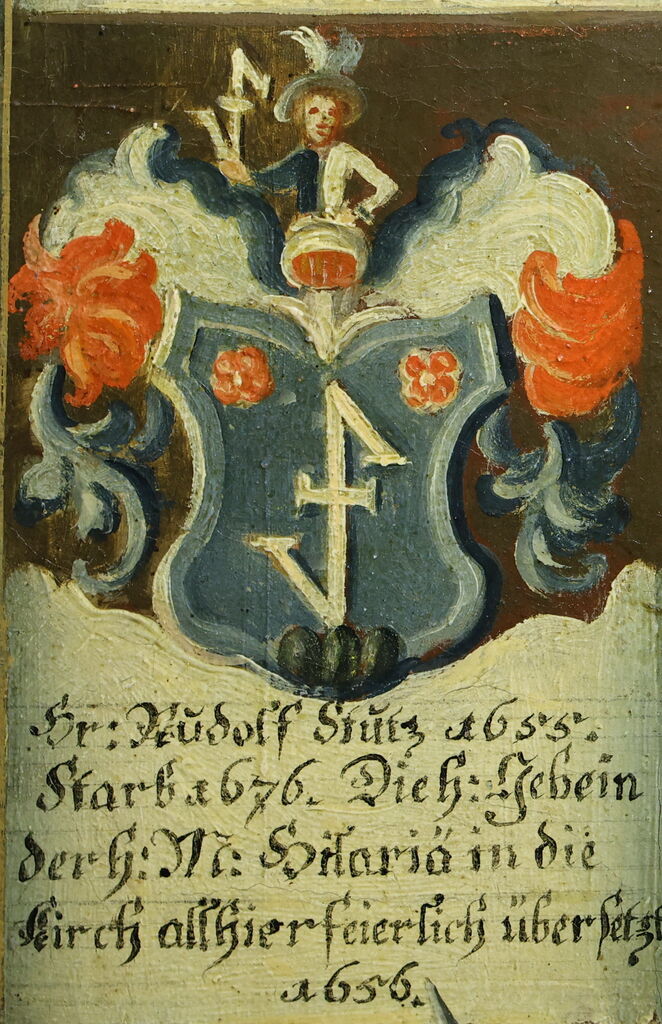 Hr: Rŭdolf Stŭtz a1655.
Starb a1676. Die h: Gebein
der h: M: Hilariä in die
Kirch allhier feierlich übersetzt
a1656.